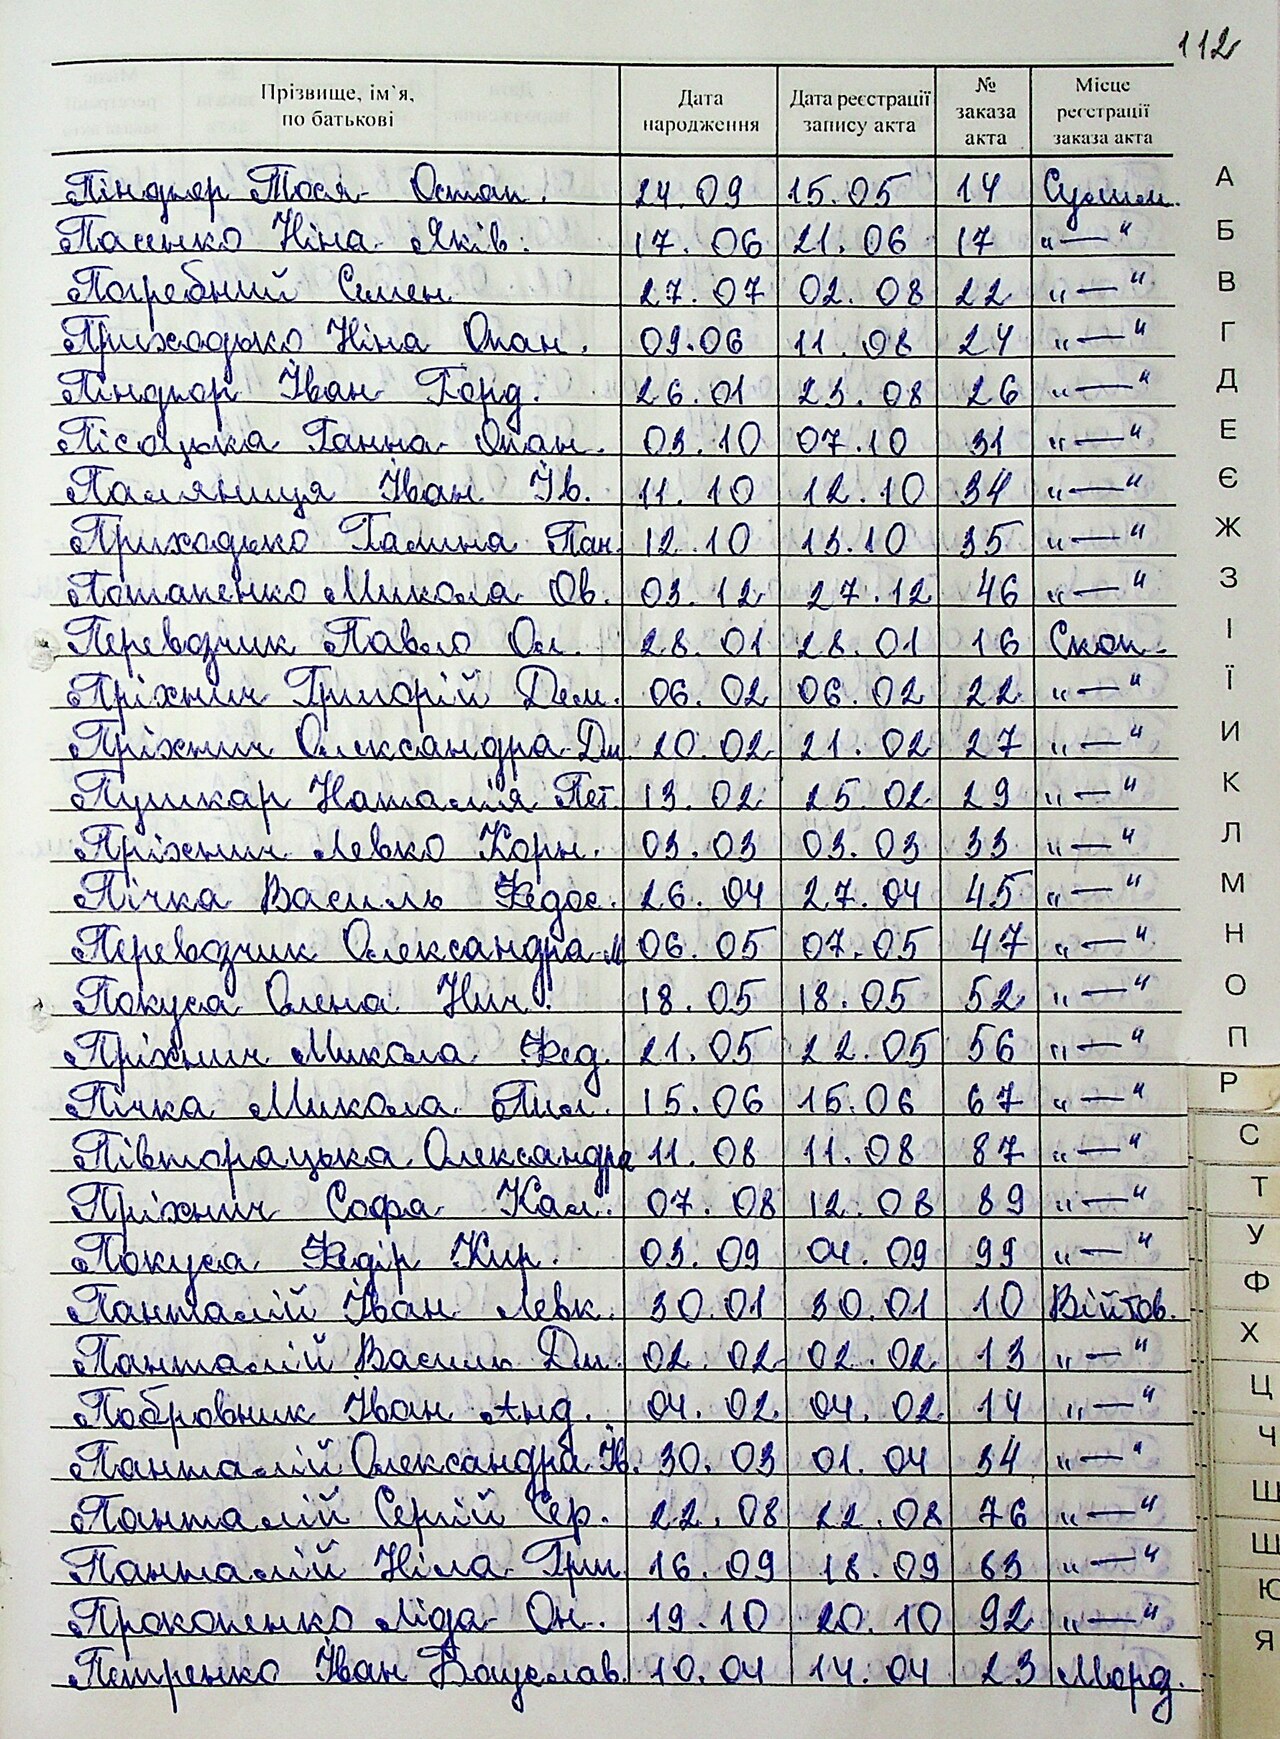 112
Прізвище, ім'я, по батькові Дата народження Дата реєстрації запису акта № заказа акта Місце реєстрації заказа акта
Піндюр Тося Остап. 24.09 15.05 14 А
Пасенко Ніна Яків. 17.06 21.06 17 „—" Б
Погребний Семен 27.07 02.08 22 „—" В
Приходько Ніна Опан. 09.06 11.08 24 „—" Г
Піндюр Іван Горд. 26.01 23.08 26 „—" Д
Пісоцька Ганна Опан. 03.10 07.10 31 „—" Е
Паляниця Іван Ів. 11.10 12.10 34 „—" Є
Приходько Галина Пан. 12.10 13.10 35 „—" Ж
Потапенко Микола Ов. 03.12 27.12 46 „—" З
Перевозчик Павло Ол. 28.01 28.01 16 Скоп. І
Пріхнич Григорій Дем. 06.02 06.02 22 „—" Ї
Пріхнич Олександра Дм 20.02 21.02 27 „—" И
Пушкар Наталія Пет. 13.02 25.02 29 „—" К
Пріхнич Левко Корн. 03.03 03.03 33 „—" Л
Пічка Василь Федос. 26.04 27.04 45 „—" М
Перевозчик Олександра М 06.05 07.05 47 „—" Н
Покуса Олена Нич. 18.05 18.05 52 „—" О
Пріхнич Микола Фед. 21.05 22.05 56 „—" П
Пічка Микола Пил. 15.06 15.06 67 „—" Р
Півторацька Олександра 11.08 11.08 87 „—" С
Пріхнич Софа Кал. 07.08 12.08 89 „—" Т
Покуса Федір Кир. 03.09 04.09 99 „—" У
Панталій Іван Левк. 30.01 30.01 10 Війтов. Ф
Панталій Василь Дм. 02.02 02.02 13 „—" Х
Побровник Іван Анд. 04.02 04.02 14 „—" Ц
Панталій Олександра Ів. 30.03 01.04 34 „—" Ч
Панталій Сергій Сер. 22.08 22.08 76 „—" Ш
Панталій Ніла Гри. 16.09 18.09 83 „—" Щ
Ю
Прокопенко Ліда Он. 19.10 20.10 92 „—" Я
Петренко Іван Вацслав. 10.04 14.04 23 Морд.